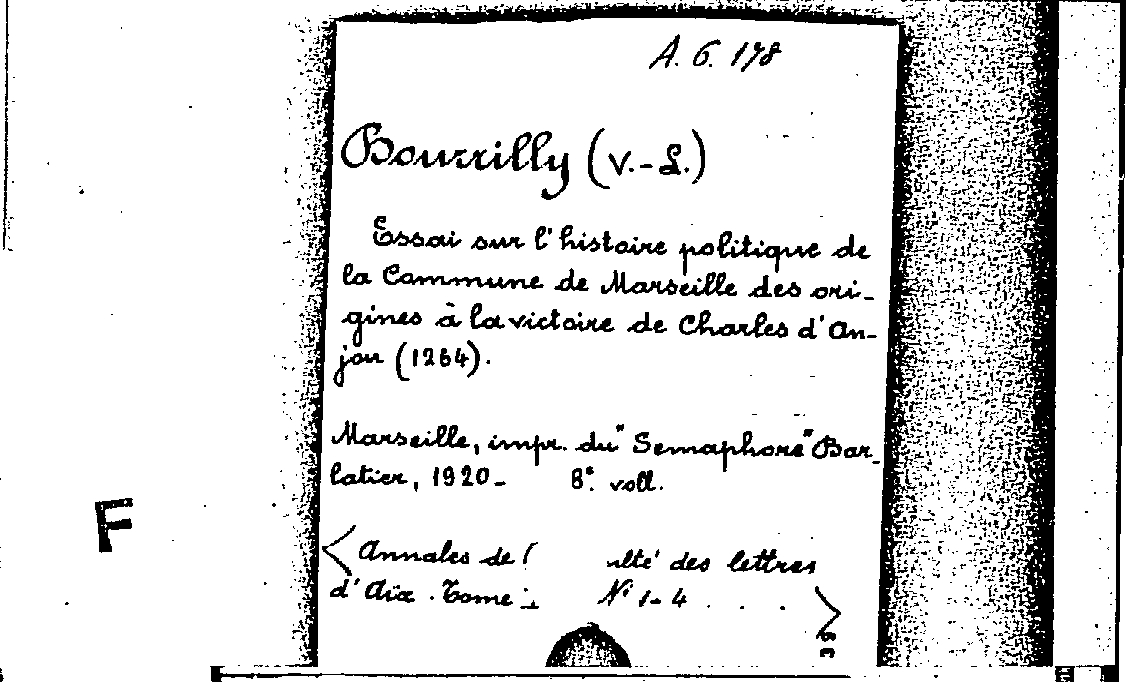 A. 6. 178
Bourrilly (V.-L.)
Essai sur l'histoire politique de
la Commune de Marseille des ori-
gines à la victoire de Charles d'An-
jou (1264).
Marseille, impr. du "Semaphore" Bar-
latier, 1920- 8°. voll.
<Annales de ulté des lettres
d'Aix. Tome N° 1-4 . . . >
F